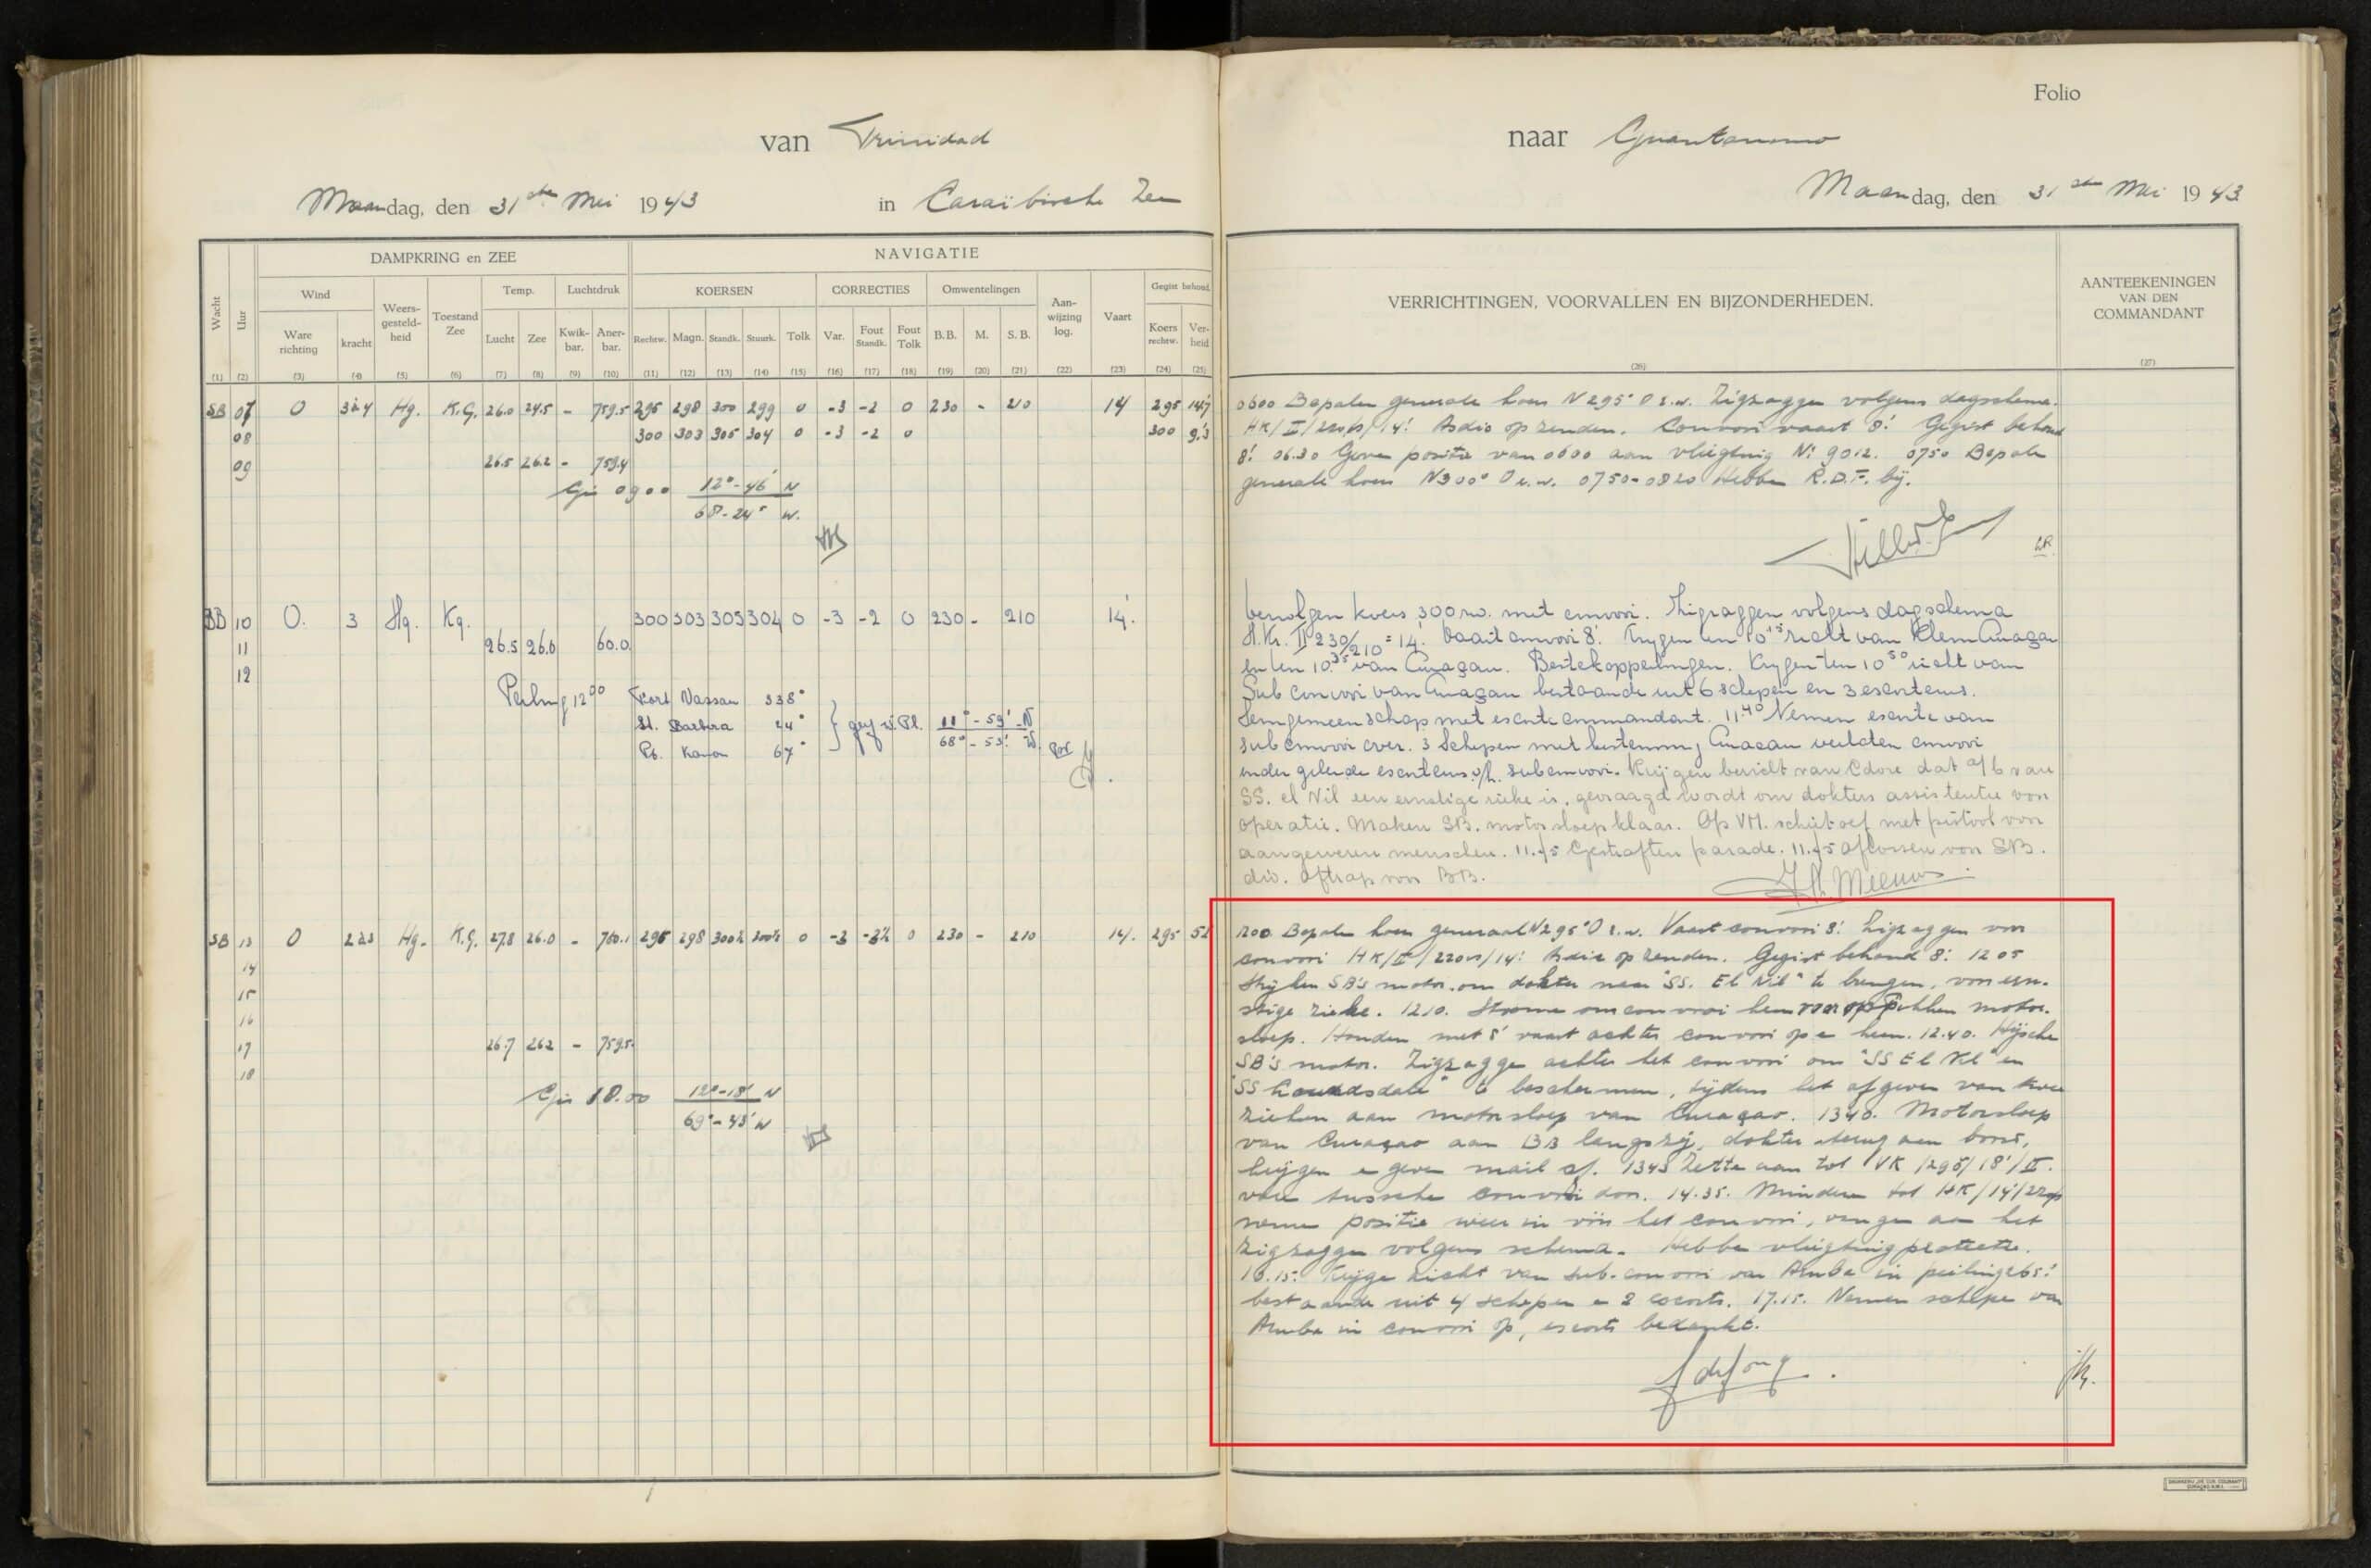 Folio
van Trinidad
naar Guantanamo
Maandag, den 31sten Mei 1943 in Caraïbische Zee
Maandag, den 31sten Mei 1943
DAMPKRING en ZEE
NAVIGATIE
Wacht Uur Wind Weers-gesteld-heid Toestand Zee Temp. Luchtdruk KOERSEN CORRECTIES Omwentelingen Aan-wijzing log. Vaart Gegist behoud.
Ware richting kracht Lucht Zee Kwik-bar. Aner-bar. Rechtw. Magn. Standk. Stuurk. Tolk Var. Fout Standk. Fout Tolk B.B. M. S.B. Koers rechtw. Ver-heid
(1) (2) (3) (4) (5) (6) (7) (8) (9) (10) (11) (12) (13) (14) (15) (16) (17) (18) (19) (20) (21) (22) (23) (24) (25)
VERRICHTINGEN, VOORVALLEN EN BIJZONDERHEDEN.
(26)
AANTEEKENINGEN
VAN DEN
COMMANDANT
(27)
SB 07 O 3à4 Hg. K.G. 26.0 24.5 - 759.5 295 298 300 299 0 -3 -2 0 230 - 210 14 295
08 300 303 305 304 0 -3 -2 0 300 9.3
09 26.5 26.2 - 759.4
0900 12°-46' N
68-24' W.
BB 10 O. 3 Hg. Kg. 300 303 305 304 0 -3 -2 0 230 - 210 14.
11 26.5 26.0 60.0
12
Peiling 12 00 Fort Nassau 338°
St. Barbara 24° geg. w. Pl. 11° - 59' N
Pt. Kanon 67° 68° - 53' W
SB 13 O 2à3 Hg. K.G. 27.8 26.0 - 760.1 295 298 300½ 300½ 0 -3 -2½ 0 230 - 210 14. 295 52
14
15
16
17 26.7 262 - 759.5
18
18.00 12°-18' N
69°-43' W
0600 Bepalen generale koers N295°O r.w. Zigzaggen volgens dagschema.
HK/II/ /14' Asdic op zenden. Convooi vaart 8'. Gegist behoud
8'. 06.30 Geven positie van 0600 aan vliegtuig N: 9012. 0750 Bepalen
generale koers N300°O r.w. 0750-0820 Hebben R.D.F. bij.
bevolgen koers 300 rw. met convooi. Zigzaggen volgens dagschema
H.Kr. II 230/210 = 14'. Vaart convooi 8'. Krygen ten 10 15 zicht van Klein Curaçao
en ten 10.35 van Curaçao. Bestekoppeilingen. Krygen ten 10 50 zicht van
Sub convooi van Curaçao bestaande uit 6 schepen en 3 escorteurs.
Seingemeenschap met escorte commandant. 11.40 Nemen escorte van
subconvooi over. 3 Schepen met bestemming Curacau verlaten convooi
onder geleide escorteurs v/h. subconvooi. Krijgen bericht van Cdore dat a/b van
SS. el Nil een ernstige zieke is, gevraagd wordt om dokters assistentie voor
operatie. Maken SB. motorsloep klaar. Op VM. schietoef met pistool voor
aangewezen menschen. 11.45 Gestraften parade. 11.45 Aflossen van SB.
div. Aftrap voor BB.
1200 Bepalen koers generaal N295°O r.w. Vaart convooi 8'. Zigzaggen voor
convooi HK/II/220n/14' Asdic op zenden. Gegist behoud 8'. 12 05
Strijken SB's motor om dokter naar "SS. El Nil" te brengen, voor ern-
stige zieke. 1210. Stoomen om convooi heen voor oppikken motor-
sloep. Houden met 8' vaart achter convooi op e heen. 12.40. Hijschen
SB's motor. Zigzaggen achter het convooi om "SS El Nil" en
"SS " te beschermen, tijdens het afgeven van twee
zieken aan motorsloep van Curaçao. 1340. Motorsloep
van Curaçao aan BB langszij, dokter terug aan boord,
krijgen en geven mail af. 1345 Zetten aan tot VK /295/18'/II.
varen tusschen convooi door. 14.35. Minderen tot HK/14'/220p
nemen positie weer in vóór het convooi, vangen aan het
zigzaggen volgens schema. Hebben vliegtuigprotectie.
16.15. Krijgen zicht van sub-convooi van Aruba in peiling 265°
bestaande uit 4 schepen en 2 escorts. 17.15. Nemen schepen van
Aruba in convooi op, escorts bedankt.
J de Jong.